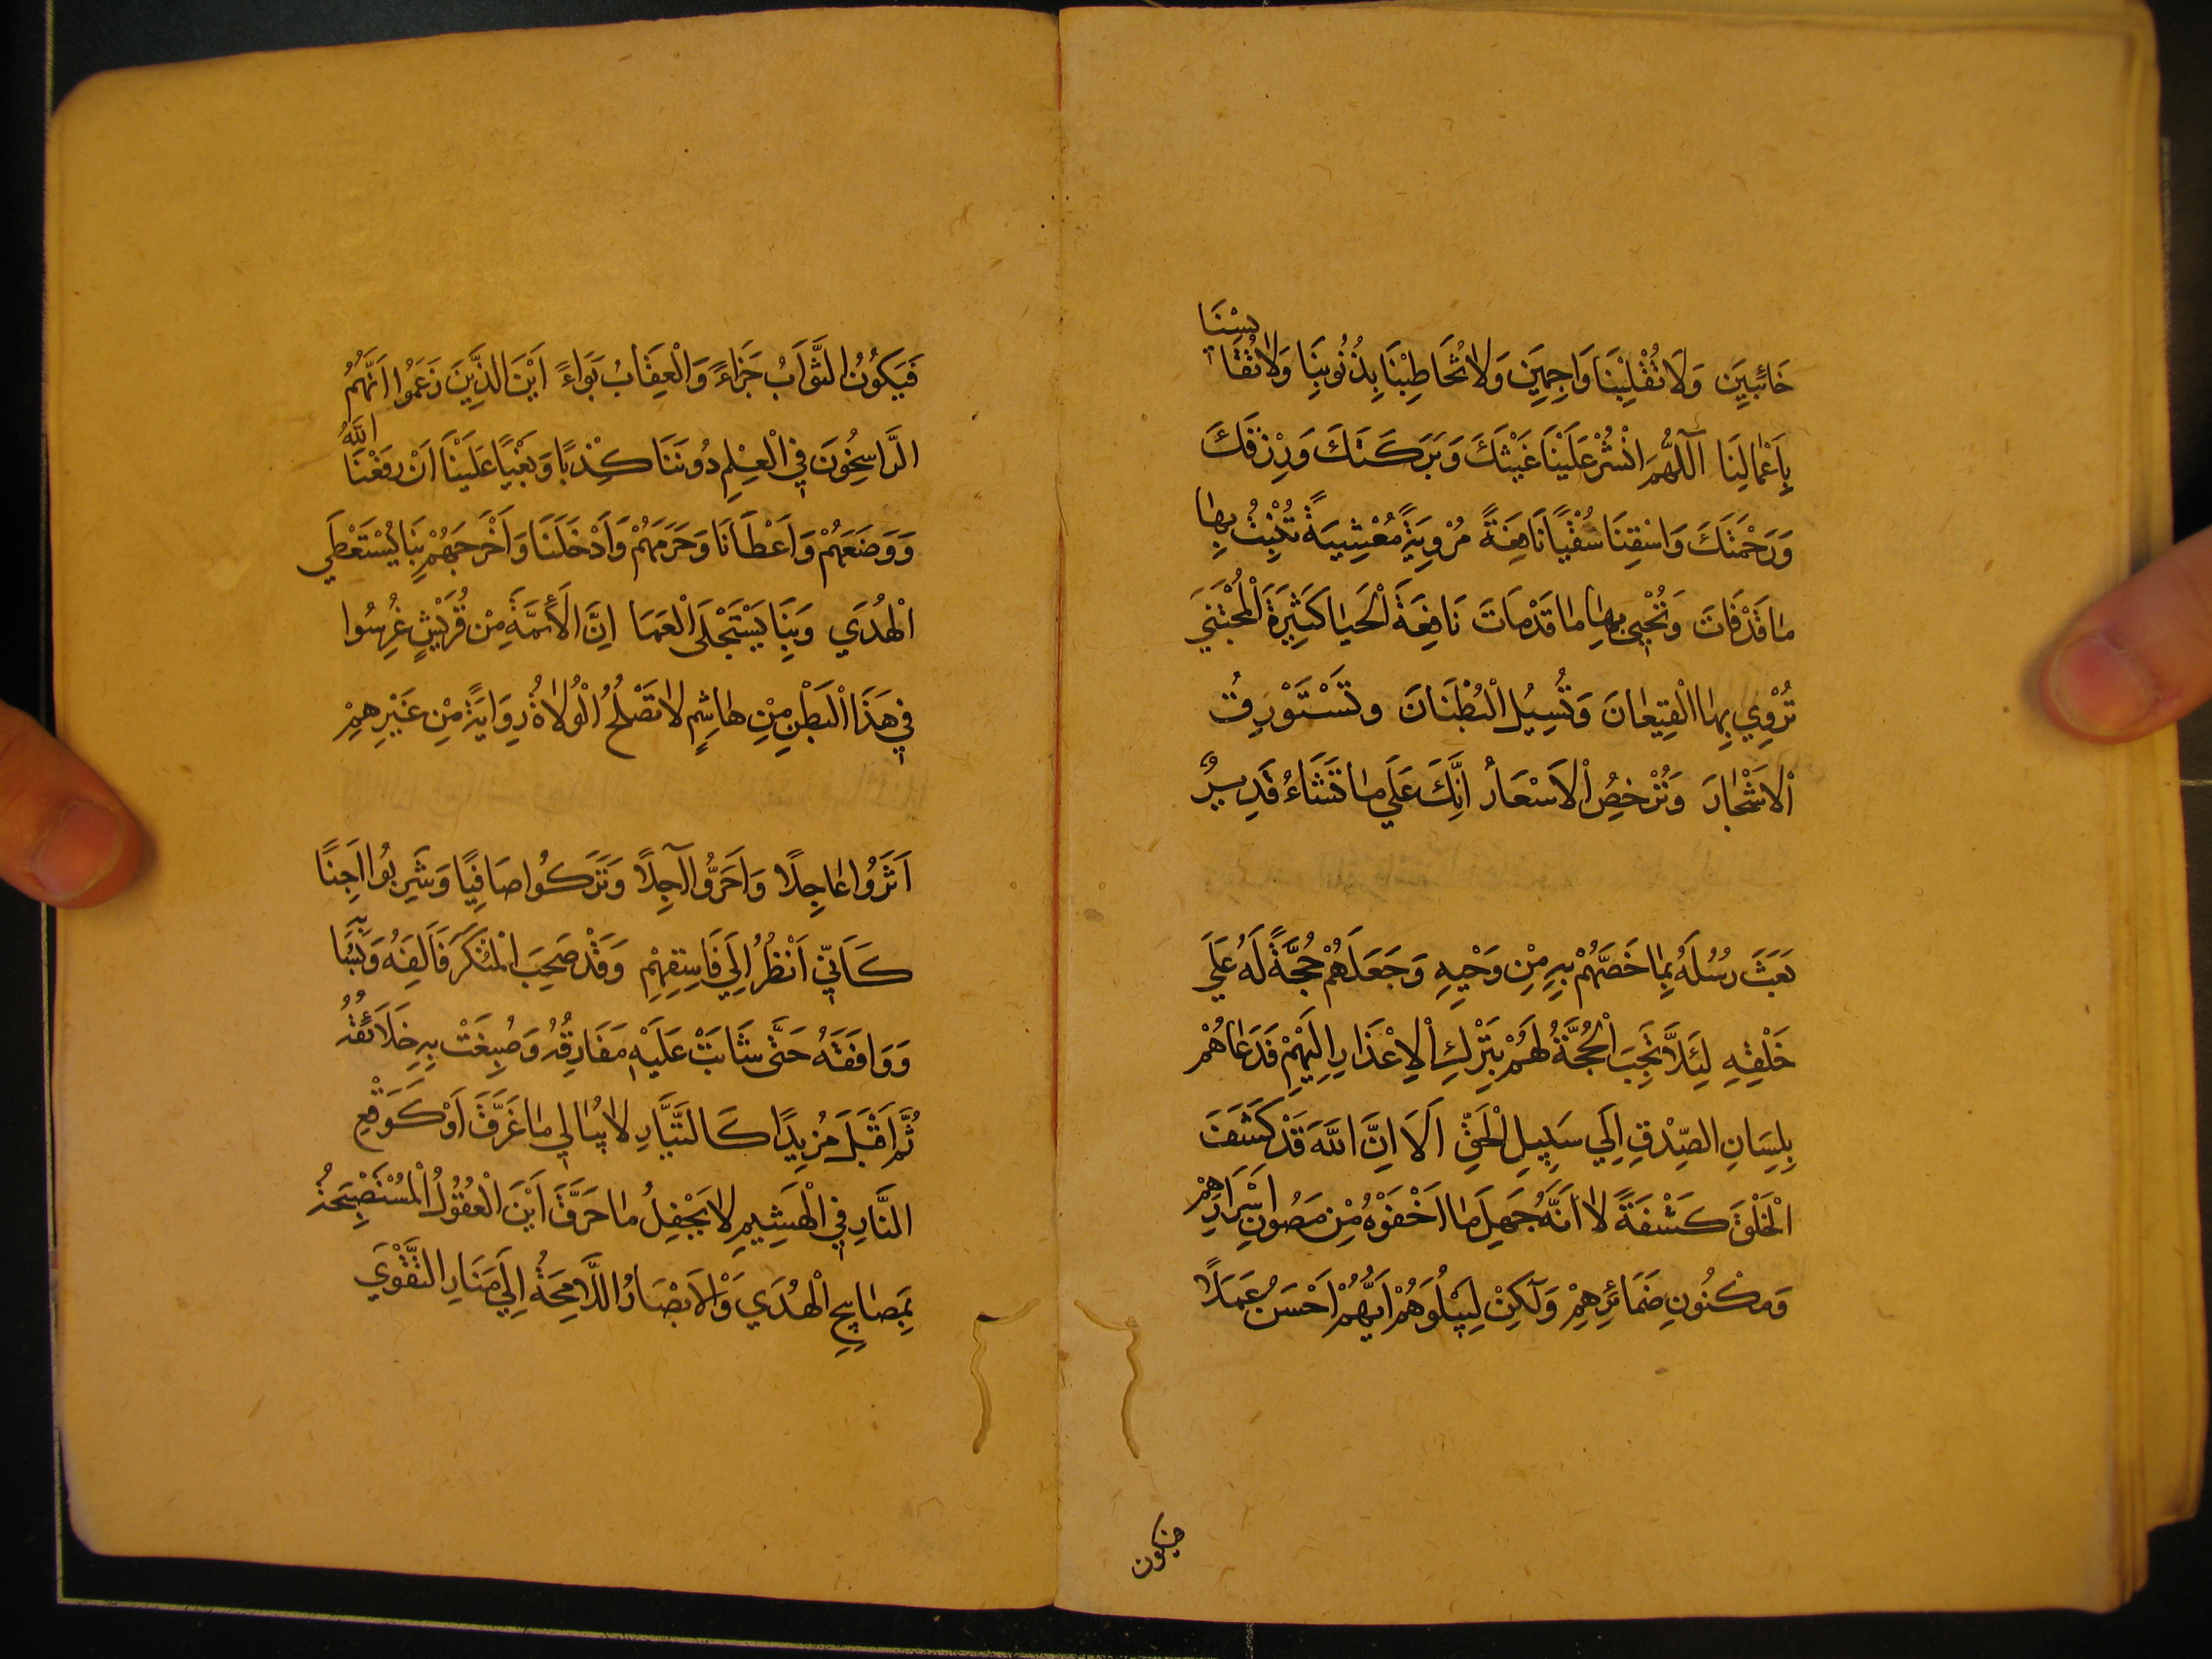 خَائِبِينَ وَلَا تَقْلِبْنَا وَاجِمِينَ وَلَا تُخَاطِبْنَا بِذُنُوبِنَا وَلَا تُقَايِسْنَا
بِأَعْمَالِنَا اَللّٰهُمَّ انْشُرْ عَلَيْنَا غَيْثَكَ وَبَرَكَتَكَ وَرِزْقَكَ
وَرَحْمَتَكَ وَاسْقِنَا سُقْيًا نَافِعَةً مُرْوِيَةً مُعْشِبَةً تُنْبِتُ بِهَا
مَا قَدْ فَاتَ وَتُحْيِي بِهَا مَا قَدْ مَاتَ نَافِعَةَ الْحَيَا كَثِيرَةَ الْمُجْتَنَى
تُرْوِي بِهَا الْقِيعَانَ وَتُسِيلُ الْبُطْنَانَ وَتَسْتَوْرِقُ
الْاَشْجَارَ وَتُرْخِصُ الْاَسْعَارَ اِنَّكَ عَلَي مَا تَشَاءُ قَدِيرٌ
بَعَثَ رُسُلَهُ بِمَا خَصَّهُمْ بِهِ مِنْ وَحْيِهِ وَجَعَلَهُمْ حُجَّةً لَهُ عَلَي
خَلْقِهِ لِئَلَّا تَجِبَ الْحُجَّةُ لَهُمْ بِتَرْكِ الْاِعْذَارِ اِلَيْهِمْ فَدَعَاهُمْ
بِلِسَانِ الصِّدْقِ اِلَي سَبِيلِ الْحَقِّ اَلَا اِنَّ اللّٰهَ قَدْ كَشَفَ
الْخَلْقَ كَشْفَةً لَا اَنَّهُ جَهِلَ مَا اَخْفَوْهُ مِنْ مَصُونِ اَسْرَارِهِمْ
وَمَكْنُونِ ضَمَائِرِهِمْ وَلٰكِنْ لِيَبْلُوَهُمْ اَيُّهُمْ اَحْسَنُ عَمَلًا
فيكون
فَيَكُونُ الثَّوَابُ جَزَاءً وَالْعِقَابُ بَوَاءً اَيْنَ الَّذِينَ زَعَمُوا اَنَّهُمُ
الرَّاسِخُونَ فِي الْعِلْمِ دُونَنَا كِذْبًا وَبَغْيًا عَلَيْنَا اَنْ رَفَعَنَا اللّٰهُ
وَوَضَعَهُمْ وَاَعْطَانَا وَحَرَمَهُمْ وَاَدْخَلَنَا وَاَخْرَجَهُمْ بِنَا يُسْتَعْطَي
الْهُدَي وَبِنَا يُسْتَجْلَى الْعَمَا اِنَّ الْاَئِمَّةَ مِنْ قُرَيْشٍ غُرِسُوا
فِي هٰذَا الْبَطْنِ مِنْ هَاشِمٍ لَا تَصْلُحُ الْوُلَاةُ رِوَايَةً مِنْ غَيْرِهِمْ
اَثَرُوا عَاجِلًا وَاَخَّرُوا آجِلًا وَتَرَكُوا صَافِيًا وَشَرِبُوا اجِنًا
كَاَنِّي اَنْظُرُ اِلَي فَاسِقِهِمْ وَقَدْ صَحِبَ الْمُنْكَرَ فَاَلِفَهُ وَبَسَأَ بِهِ
وَوَافَقَهُ حَتَّى شَابَتْ عَلَيْهِ مَفَارِقُهُ وَصُبِغَتْ بِهِ خَلَائِقُهُ
ثُمَّ اَقْبَلَ مُزْبِدًا كَالتَّيَّارِ لَا يُبَالِي مَا غَرَّقَ اَوْ كَوَقْعِ
النَّارِ فِي الْهَشِيمِ لَا يَحْفِلُ مَا حَرَّقَ اَيْنَ الْعُقُولُ الْمُسْتَصْبِحَةُ
بِمَصَابِيحِ الْهُدَي وَالْاَبْصَارُ اللَّامِحَةُ اِلَي مَنَارِ التَّقْوَي